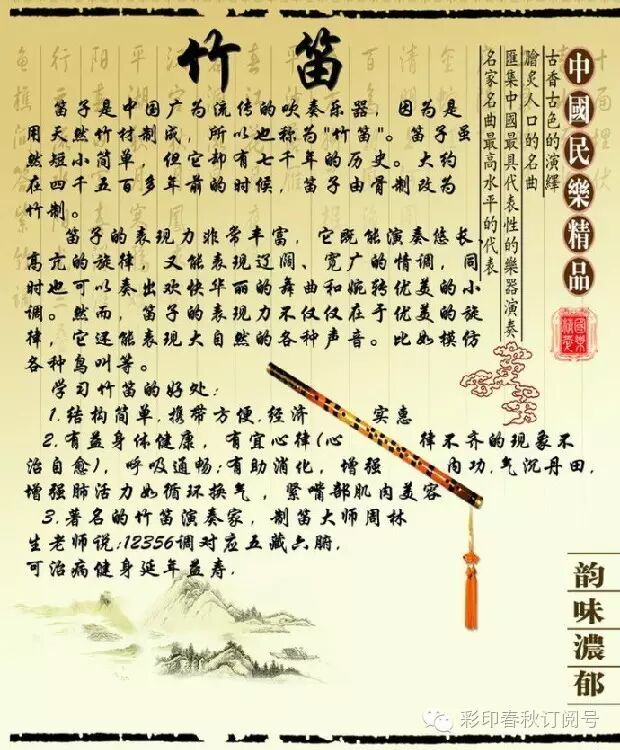 竹笛
笛子是中国广为流传的吹奏乐器，因为是
用天然竹材制成，所以也称为"竹笛"。笛子虽
然短小简单，但它却有七千年的历史。大约
在四千五百多年前的时候，笛子由骨制改为
竹制。
笛子的表现力非常丰富，它既能演奏悠长、
高亢的旋律，又能表现辽阔、宽广的情调，同
时也可以奏出欢快华丽的舞曲和婉转优美的小
调。然而，笛子的表现力不仅仅在于优美的旋
律，它还能表现大自然的各种声音。比如模仿
各种鸟叫等。
学习竹笛的好处：
1.结构简单.携带方便.经济 实惠
2.有益身体健康，有宜心律(心 律不齐的现象不
治自愈)，呼吸通畅;有助消化，增强 内功.气沉丹田.
增强肺活力如循环换气，紧嘴部肌肉美容
3.著名的竹笛演奏家，制笛大师周林
生老师说:12356调对应五藏六腑.
可治病健身延年益寿.
中國民樂精品
古香古色的演繹
膾炙人口的名曲
匯集中國最具代表性的樂器演奏
名家名曲最高水平的代表
韵味濃郁
彩印春秋订阅号